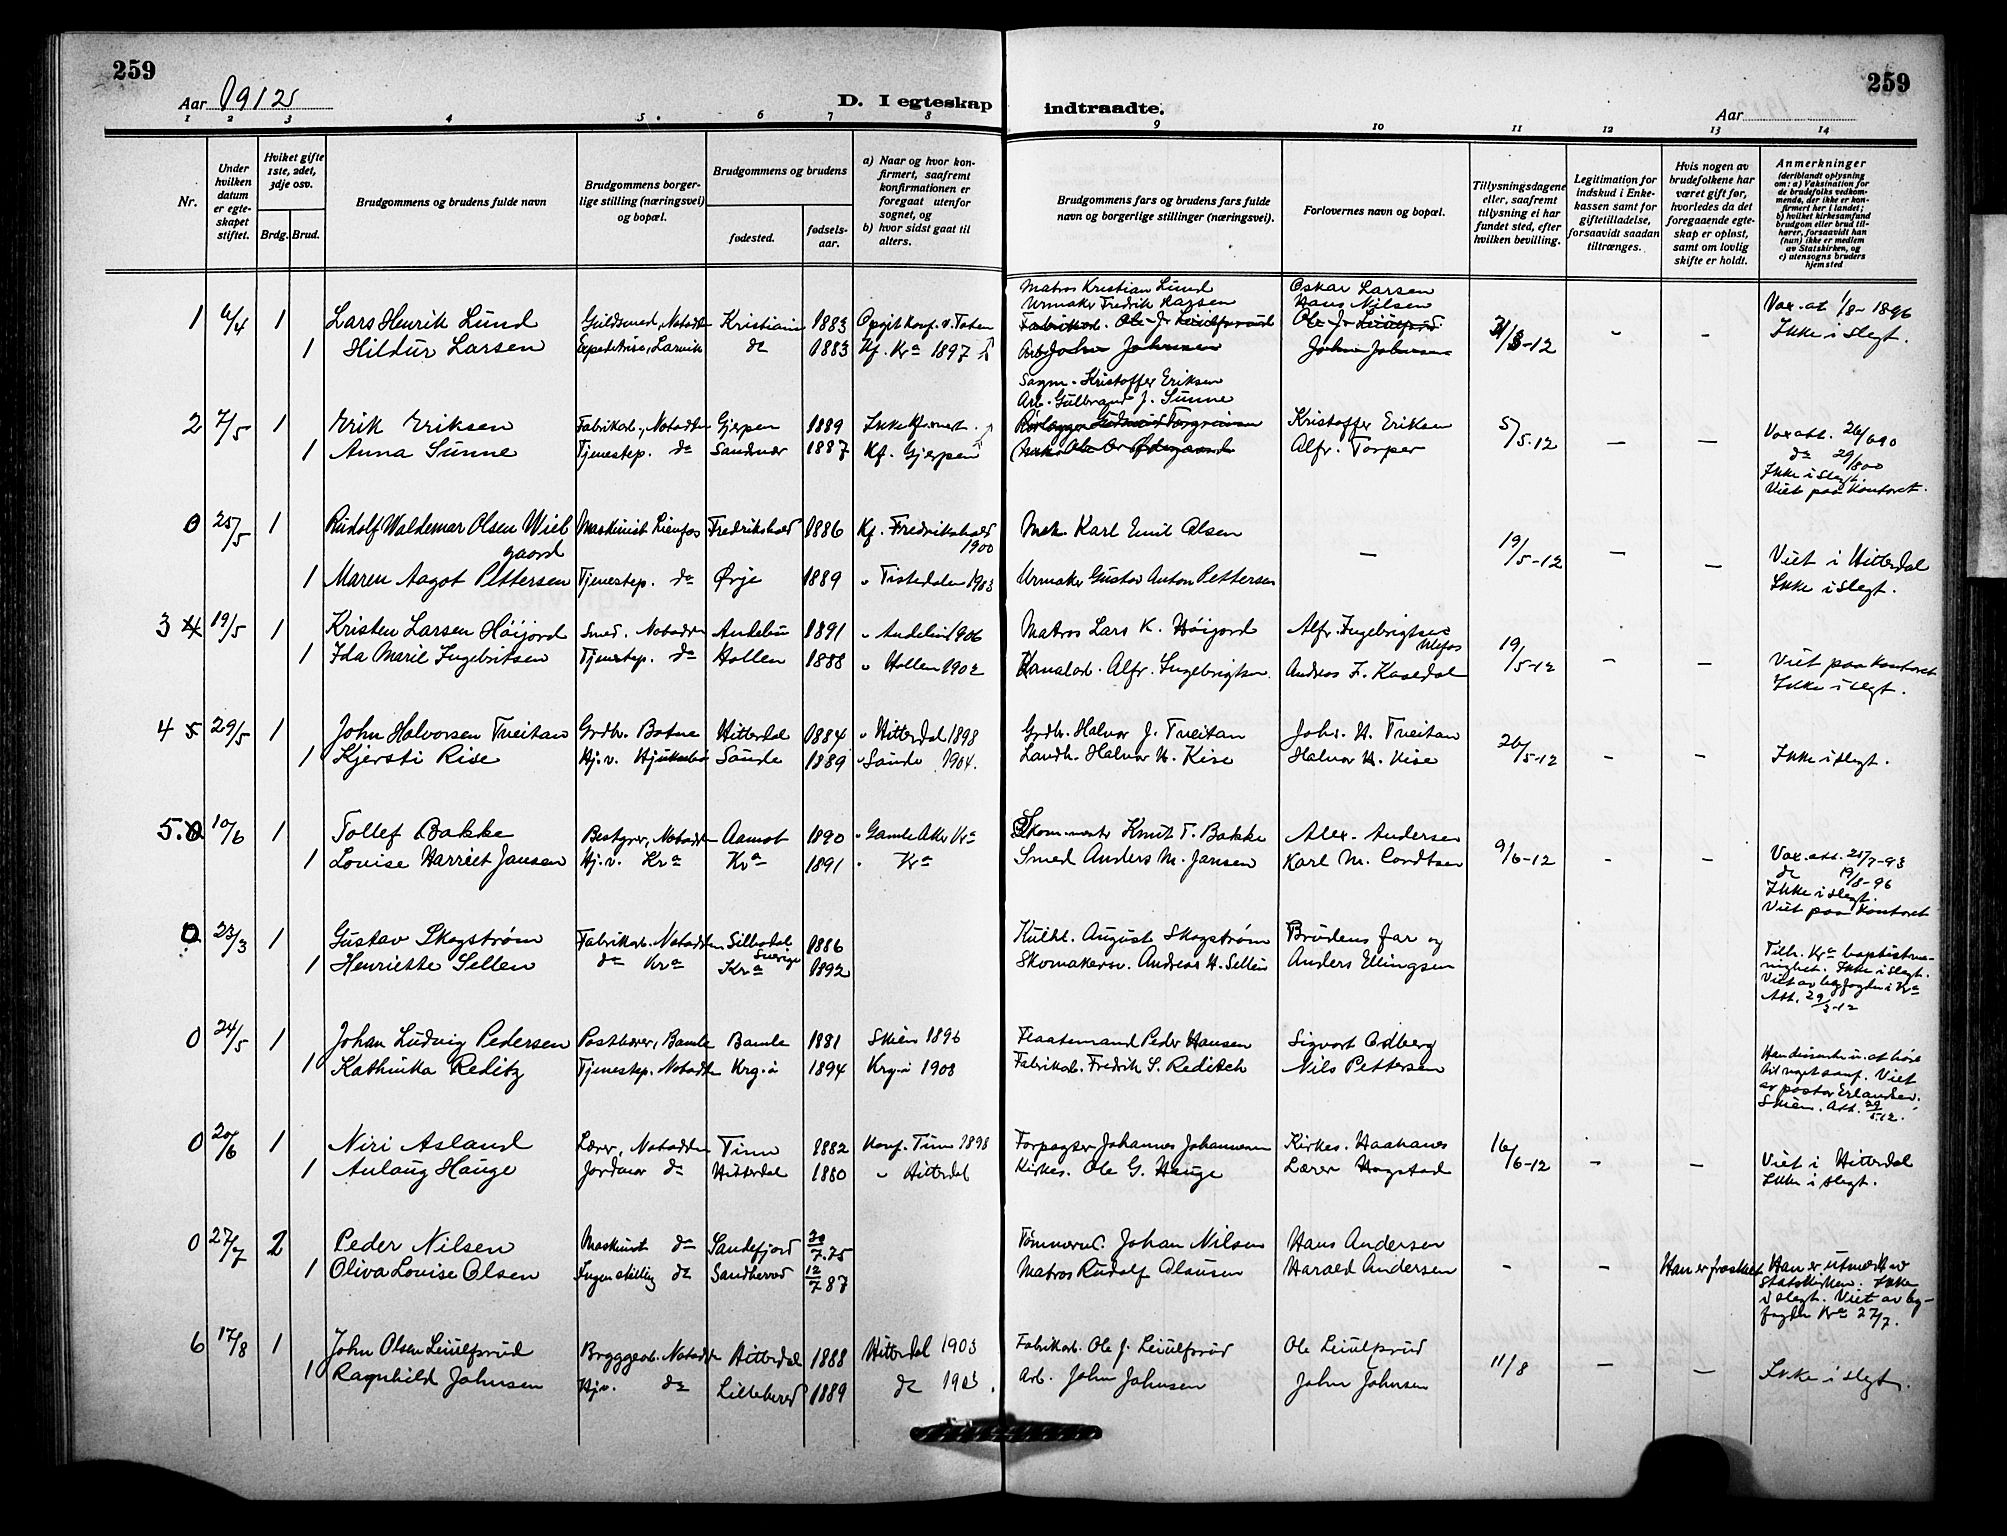 259
259
Aar 1912
D. I egteskap indtraadte.
Aar
1 2 3 4 5 6 7 8 9 10 11 12 13 14
Nr.
Under hvilken datum er egteskapet stiftet.
Hvilket gifte 1ste, 2det, 3dje osv.
Brdg. Brud.
Brudgommens og brudens fulde navn
Brudgommens borgerlige stilling (næringsvei) og bopæl.
Brudgommens og brudens
fødested.
fødselsaar.
a) Naar og hvor konfirmert, saafremt konfirmationen er foregaat utenfor sognet, og
b) hvor sidst gaat til alters.
Brudgommens fars og brudens fars fulde navn og borgerlige stillinger (næringsvei).
Forlovernes navn og bopæl.
Tillysningsdagene eller, saafremt tillysning ei har fundet sted, efter hvilken bevilling.
Legitimation for indskud i Enkekassen samt for giftetilladelse, forsaavidt saadan tiltrænges.
Hvis nogen av brudefolkene har været gift før, hvorledes da det foregaaende egteskap er opløst, samt om lovlig skifte er holdt.
Anmerkninger (deriblandt oplysning om: a) Vaksination for de brudefolks vedkommende, der ikke er konfirmert her i landet; b) hvilket kirkesamfund brudgom eller brud tilhører, forsaavidt han (hun) ikke er medlem av Statskirken, og c) utensogns bruders hjemsted
Matros Kristian Lund Oskar Larsen
Urmaker Fredrik Larsen Hans Nilsen
1 6/4 1 Lars Henrik Lund Guldsmed, Notodden Kristiania 1883 Fabrikarb. Ole Jr Liulfsrud Ole Jr Liulfsrud 31/3-12 - - Vax.at 1/8-1896
1 Hildur Larsen Larvik do 1883 Kf. Kra 1897 Arb John Johnsen John Johnsen Ikke i slegt.
Sagm. Kristoffer Eriksen
Arb. Gulbrand J. Sunne
2 7/5 1 Erik Eriksen Fabrikarb., Notodden Gjerpen 1889 Kristoffer Eriksen 5/5-12 - - Vax att. 26/6 90
1 Anna Sunne Tjenestep. do 1887 Kf. Gjerpen Alfr. Torper do 29/8 00
Ikke i slegt.
Viet paa Kontoret.
0 25/5 1 Rudolf Waldemar Olsen Wiel- Maskinist Rienfos Fredrikshald 1886 Kf. Fredrikshald Mek Karl Emil Olsen
gaard 1900 - 19/5-12 - - Viet i Hitterdal
1 Maren Aagot Pettersen Tjenestep. do Ørje 1889 " Tistedalen 1903 Urmaker Gustav Anton Pettersen Ikke i slegt.
3 4 19/5 1 Kristen Larsen Høijord Smed. Notodden Andebu 1891 " Andebu 1906 Matros Lars K. Høijord Alfr. Ingebrigtsen Ulefos 19/5-12 - - Viet paa kontoret
1 Ida Marie Ingebritsen Tjenestep. do Hollen 1888 " Hollen 1902 Kanalarb. Alfr. Ingebrigtsen Andreas F. Kasedal Ikke i slegt.
4 5 29/5 1 John Halvorsen Tveitan Grdbr. Hitterdal 1884 " Hitterdal 1898 Grdbr. Halvor J. Tveitan Johs. H. Tveitan 26/5-12 - - Ikke i slegt.
1 Kjersti Rise Hj.v. Hjuksebø Saude 1889 " Saude 1904. Landh. Halvor H. Rise Halvor H. Rise
5. 10/6 1 Tollef Bakke Bestyrer, Notodden Aamot 1890 " Gamle Aker Kra Skom.mester Knut T. Bakke Alex. Andersen 9/6-12 - - Vax.att. 25/7-93
1 Louise Harriet Jansen Hj.v. Kra Kra 1891 " Kra Smed Anders M. Jansen Karl M. Cordtsen do 19/8-96
Ikke i slegt.
Viet paa Kontoret
0 23/3 1 Gustav Skogström Fabrikarb. Notodden Sillbodal Sverige 1886 August Skogström Brudens far og Tilh. Kra baptistme-
1 Henriette Sellen do Kra Kra 1892 Skomakersv. Andreas H. Sellén Anders Ellingsen nighet. Ikke i slegt.
Viet av byfogden i Kra
Att. 29/3-12
0 24/5 1 Johan Ludvig Pedersen Bamle Bamle 1881 Skien 1896 Flaatemand Peder Hansen Sigvart Odberg
1 Kathinka Reditz Tjenestep. Notodden Krg.ø 1894 Krg.ø 1908 Fabrikarb. Fredrik S. Reditch Nils Pettersen Viet
av pastor Erlandsen.
Skien. Att. 29/5 12.
0 20/6 1 Niri Asland Lærer, Notodden Tinn 1882 Konf. Tinn 1898 Forpagter Johannes Johannesen Kirkes. Haahanes 16/6-12 - - Viet i Hitterdal
1 Aulaug Hauge Jordmor do Hitterdal 1880 " Hitterdal Kirkes. Ole G. Hauge Lærer Hogstad Ikke i slegt.
0 27/7 2 Peder Nilsen Maskinist do Sandefjord 20/7.75 Tømmerm. Johan Nilsen Hans Andersen
1 Oliva Louise Olsen Ingen stilling do Sandherred 12/7 87 Matros Rudolf Olausen Harald Andersen - - Han er fraskilt Han er utmeldt av
Statskirken. Ikke
i slegt. Viet av by-
fogden Kra 27/7.
6 17/8 1 John Olsen Liulfsrud Bryggearb. Notodden Hitterdal 1888 Hitterdal 1903 Fabrikarb. Ole J. Liulfsrud Ole Liulfsrud 11/8 - - Ikke i slegt.
1 Ragnhild Johnsen Hjv. do Lilleherred 1889 do 1903. Arb. John Johnsen John Johnsen